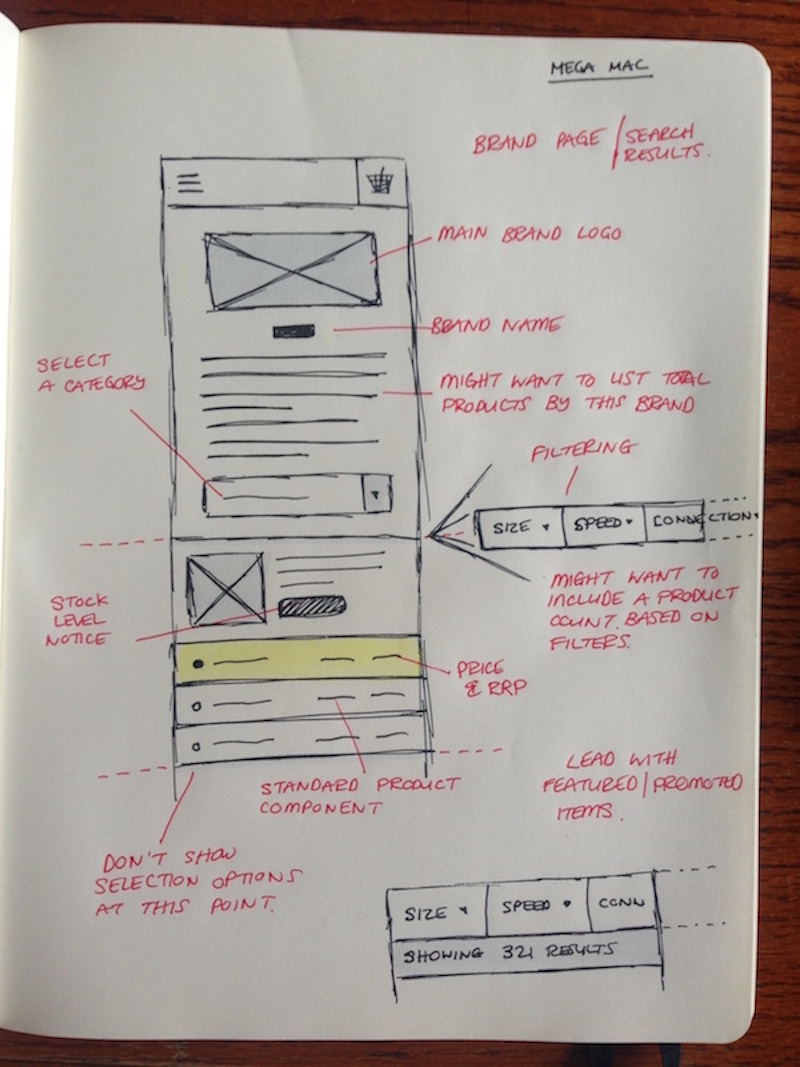 MEGA MAC
BRAND PAGE / SEARCH
RESULTS.
MAIN BRAND LOGO
BRAND NAME
SELECT
A CATEGORY
MIGHT WANT TO LIST TOTAL
PRODUCTS BY THIS BRAND
FILTERING
SIZE SPEED CONNECTION
MIGHT WANT TO
INCLUDE A PRODUCT
COUNT. BASED ON
FILTERS.
STOCK
LEVEL
NOTICE
PRICE
& RRP
STANDARD PRODUCT
COMPONENT
LEAD WITH
FEATURED/PROMOTED
ITEMS.
DON'T SHOW
SELECTION OPTIONS
AT THIS POINT.
SIZE SPEED CONN
SHOWING 321 RESULTS